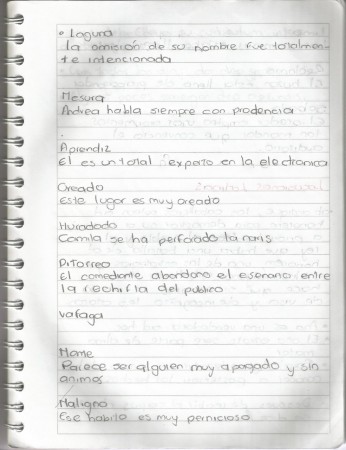 • Laguna
la omición de su nombre fue totalmen-
te intencionada
Mesura
Andrea habla siempre con prodencia
Aprendiz
El es un total experto en la electronica
Oreado
Este lugar es muy oreado
Huradado
Camila se ha perforado la nariz
Pitorreo
El comediante abordono el esenario entre
la rechifla del publico
vafaga
Mame
Parece ser alguien muy apagado y sin
animos
Maligno
Ese habito es muy pernicioso